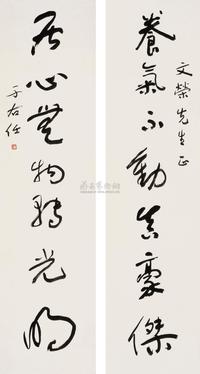 文荣先生正
養氣不動真豪傑
居心無物轉光明
于右任